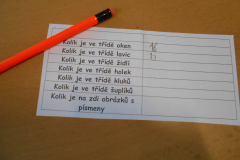 Kolik je ve třídě oken
Kolik je ve třídě lavic
Kolik je ve třídě židlí
Kolik je ve třídě holek
Kolik je ve třídě kluků
Kolik je ve třídě šuplíků
Kolik je na zdi obrázků s
písmeny